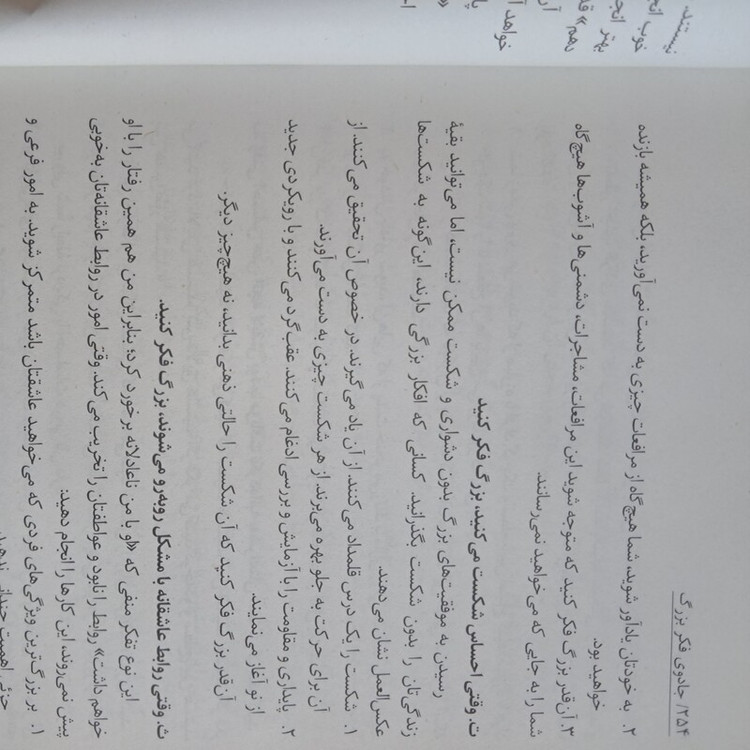 ۲۵۴/ جادوی فکر بزرگ
۲. به خودتان یادآور شوید، شما هیچ‌گاه از مرافعات چیزی به دست نمی‌آورید، بلکه همیشه بازنده
خواهید بود.
۳. آن‌قدر بزرگ فکر کنید که متوجه شوید این مرافعات، مشاجرات، دشمنی‌ها و آشوب‌ها هیچ‌گاه
شما را به جایی که می‌خواهید نمی‌رسانند.
ت. وقتی احساس شکست می‌کنید، بزرگ فکر کنید
رسیدن به موفقیت‌های بزرگ بدون دشواری و شکست ممکن نیست، اما می‌توانید بقیهٔ
زندگی‌تان را بدون شکست بگذرانید. کسانی که افکار بزرگی دارند، این‌گونه به شکست‌ها
عکس‌العمل نشان می‌دهند.
۱. شکست را یک درس قلمداد می‌کنند. از آن یاد می‌گیرند. در خصوص آن تحقیق می‌کنند. از
آن برای حرکت به جلو بهره می‌برند. از هر شکست چیزی به دست می‌آورند.
۲. پایداری و مقاومت را با آزمایش و بررسی ادغام می‌کنند. عقب‌گرد می‌کنند و با رویکردی جدید
از نو آغاز می‌نمایند.
آن‌قدر بزرگ فکر کنید که آن شکست را حالتی ذهنی بدانید، نه هیچ‌چیز دیگر.
ث. وقتی روابط عاشقانه با مشکل روبه‌رو می‌شوند، بزرگ فکر کنید.
این نوع تفکر منفی که «او با من ناعادلانه برخورد کرد؛ بنابراین من هم همین رفتار را با او
خواهم داشت» روابط را نابود و عواطفتان را تخریب می‌کند. وقتی امور در روابط عاشقانه‌تان به‌خوبی
پیش نمی‌روند، این کارها را انجام دهید:
۱. بر بزرگ‌ترین ویژگی‌های فردی که می‌خواهید عاشقتان باشد متمرکز شوید. به امور فرعی و
جزئی اهمیت چندانی ندهید.
نیستند.
خوب
بهتر
خواهد